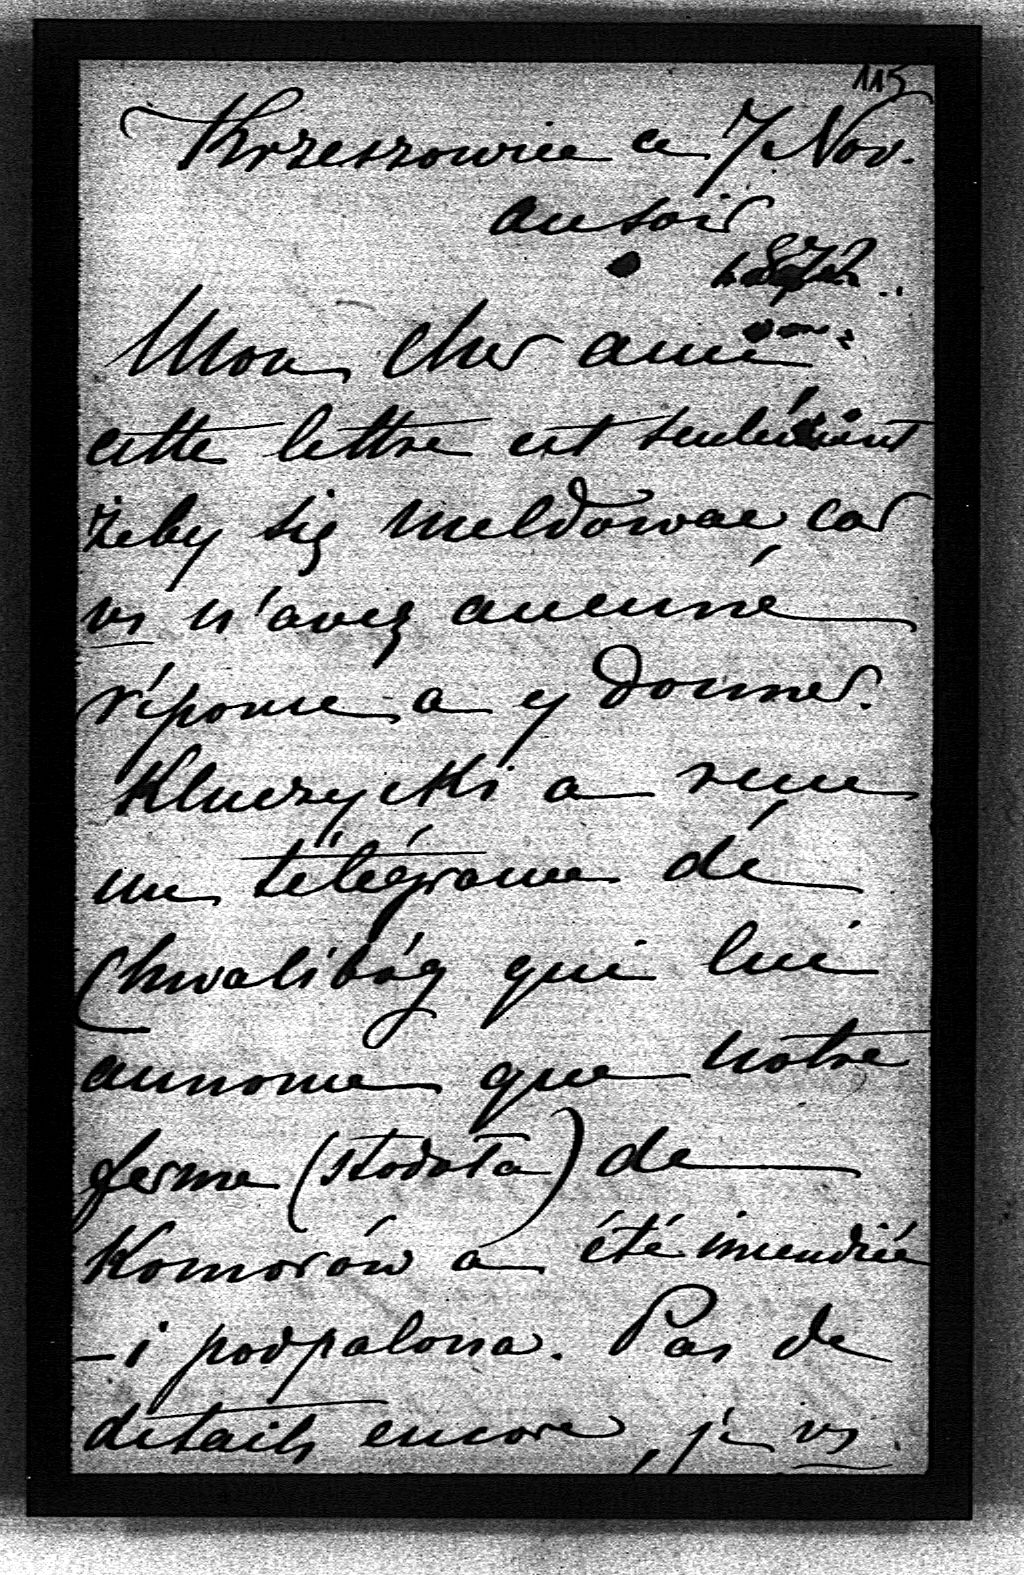 115
Krzeszowice ce 7 Nov.
au soir
1872
Mon cher ami
cette lettre est seulement
żeby się meldować car
vs n'avez aucune
réponse a y donner.
Kluczycki a reçu
un télégrame de
Chwalibóg qui lui
annonce que notre
ferme (stodoła) de
Komorów a été incendiée
– i podpalona. Pas de
details encore, je vs